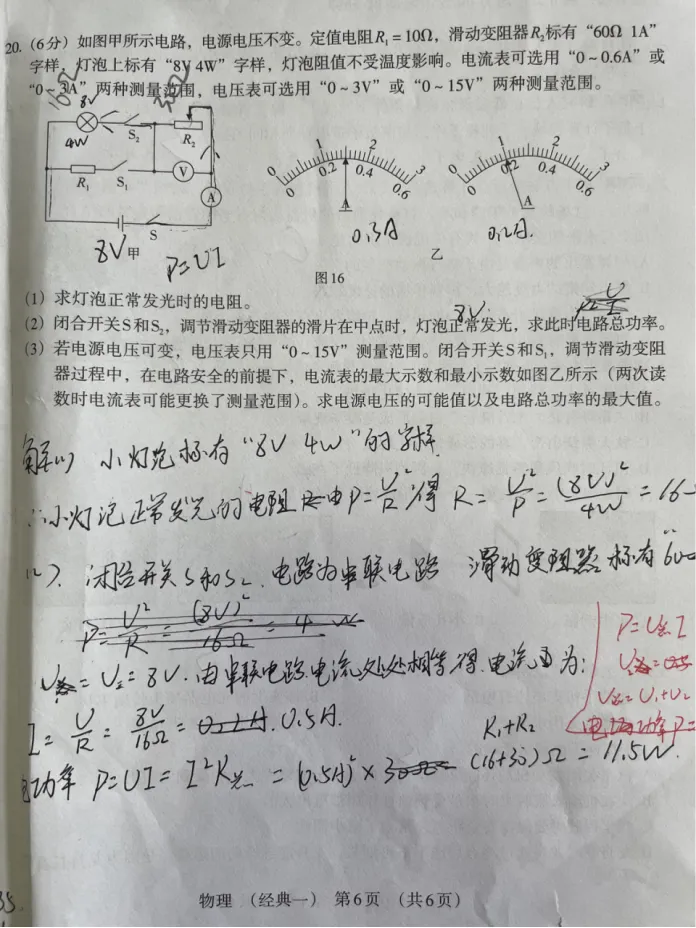 20. (6分) 如图甲所示电路，电源电压不变。定值电阻R₁=10Ω，滑动变阻器R₂标有“60Ω 1A”
字样，灯泡上标有“8V 4W”字样，灯泡阻值不受温度影响。电流表可选用“0~0.6A”或
“0~3A”两种测量范围，电压表可选用“0~3V”或“0~15V”两种测量范围。
8V
4W
S₂
R₂
R₁
S₁
V
A
S
8V
甲
P=UI
0 1 2 3
0 0.2 0.4 0.6
A
0.3A
0 1 2 3
0 0.2 0.4 0.6
A
0.12A
乙
图16
(1) 求灯泡正常发光时的电阻。
8V
(2) 闭合开关S和S₂，调节滑动变阻器的滑片在中点时，灯泡正常发光，求此时电路总功率。
(3) 若电源电压可变，电压表只用“0~15V”测量范围。闭合开关S和S₁，调节滑动变阻
器过程中，在电路安全的前提下，电流表的最大示数和最小示数如图乙所示（两次读
数时电流表可能更换了测量范围）。求电源电压的可能值以及电路总功率的最大值。
解(1) 小灯泡标有“8V 4W”的字样
∴小灯泡正常发光的电阻 由P=U²/R得 R=U²/P=(8V)²/4W=16
(2). 闭合开关S和S₂. 电路为串联电路 滑动变阻器标有“60
P=U²/R=(8V)²/16Ω=4W
=U₂=8V. 由串联电路电流处处相等得. 电流 为:
I=U/R=8V/16Ω= 0.5A.
R₁+R₂
功率 P=UI=I²R总=(0.5A)²× (16+30)Ω=11.5W.
P=U总I
U总=U₁+U₂
物理 （经典一） 第6页 （共6页）